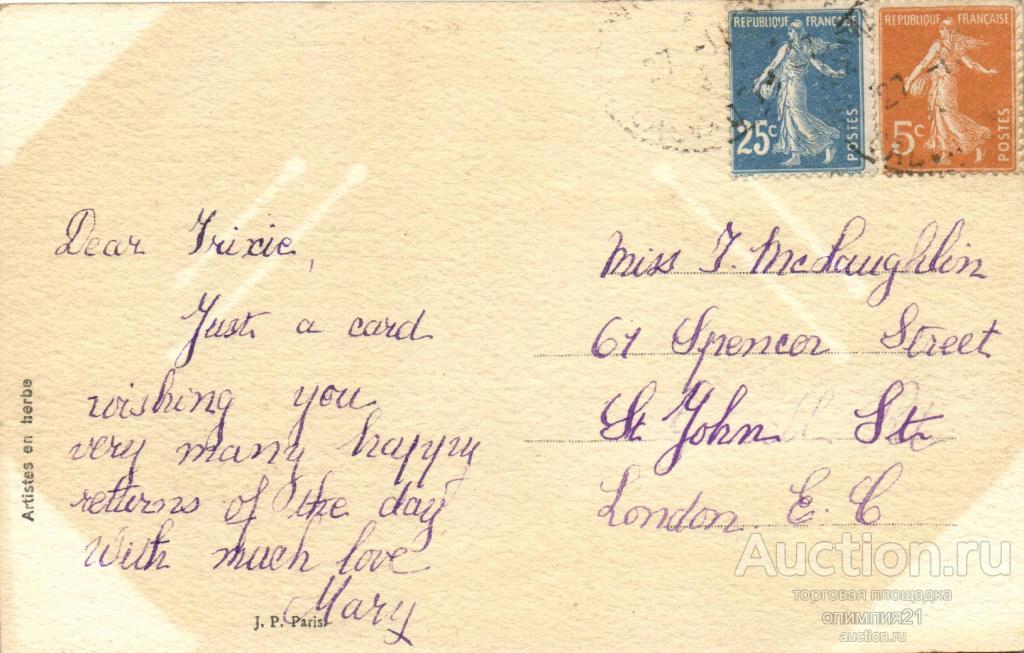 REPUBLIQUE FRANÇAISE
25c
POSTES
REPUBLIQUE FRANÇAISE
5c
POSTES
27
27
Dear Trixie,
Just a card
wishing you
very many happy
returns of the day
With much love
Mary
Miss T. McLaughlin
61 Spencer Street
St John St.
London. E. C
Artistes en herbe
J. P. Paris
Auction.ru
торговая площадка
олимпия21
auction.ru